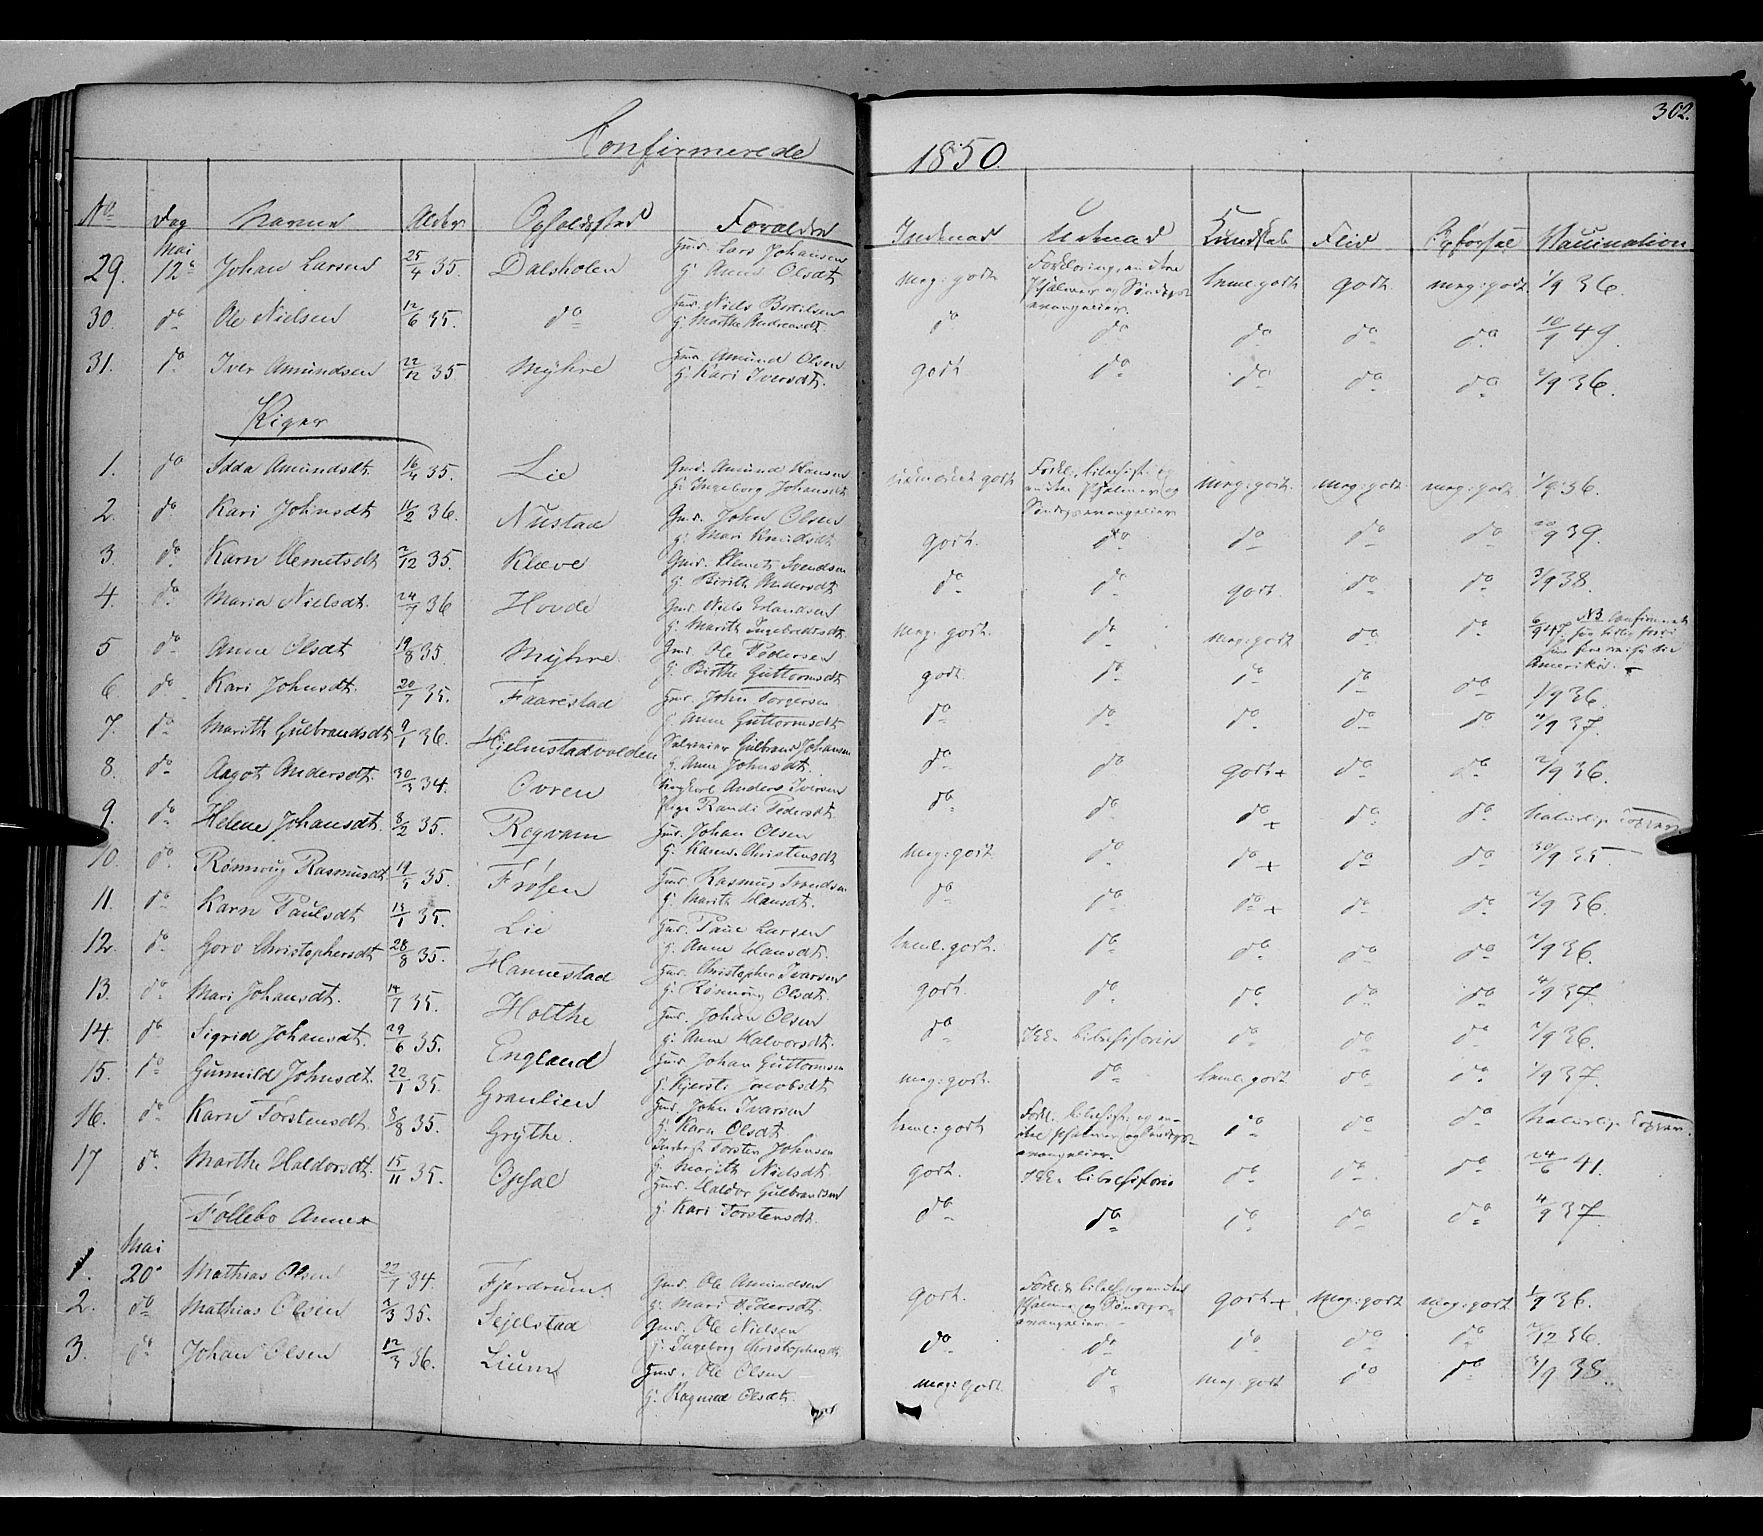 302.
Confirmerede 1850.
No Dag Navne Alder Opholdssted Forældre Indenad Udenad Kundskab Flid Opførsel Vaccination
Mai Gmd. Lars Johansen
29. 12te Johan Larsen 25/4 35. Dalsholen G: Anne Olsdt. meg: godt. Forklaring, en Deel Psalmer og Søndags- evangelier. teml. godt godt. meg: godt. 1/9 36.
30. do Ole Nielsen 12/6 35. do Gmd. Niels Bertilsen G: Marthe Andersdt. do do do do do 10/9 49.
31. do Iver Amundsen 22/12 35 Myhre Gmd. Amund Olsen G: Kari Iversdt. godt do do do do 2/9 36.
Piger
1. do Amundsdt. 16/4 35. Lie Gmd. Amund Hansen G: Ingeborg Johansdt. godt Forkl., bibelhist. og en Deel Psalmer og Søndagsevangelier meg: godt. meg: godt meg: godt 1/9 36.
2. do Kari Johnsdt 11/2 36. Nustad Gmd. John Olsen G: Mari Knudsdt. godt. do do do do 20/9 39.
3. do Karn Clemetsdt 2/12 35. Kleve Gmd. Clemet Svendsen G: Birith Andersdt. do do godt. do do 3/9 38.
4. do Maria Nielsdt. 24/7 36 Hovde Gmd. Niels Erlandsen G: Marith Ingebretsdt. meg: godt. do meg: godt do do 6/9 47 NB Confirmeret for tidlig fordi hun skal reise til Amerika.
5 do Anne Olsdt 19/8 35. Myhre. Gmd. Ole Pedersen G: Birthe Guttormsdt. godt. do do do do 1/9 36.
6 do Kari Johnsdt. 20/7 35. Faarestad Gmd. John Torgersen G: Anne Guttormsdt. do do do do do 4/9 37.
7. do Marith Gulbrandsdt 9/1 36. Hjelmstadvolden Gulbrand Johansen G: Anne Johnsdt. do do godt + do do 2/9 36.
8. do Aagot Andersdt. 30/3 34. Ovren Ungkarl Anders Iversen Pige Randi Pedersdt. do do do + do do naturlige Kopper
9. do Helene Johansdt. 8/2 35. Rogvam Gmd. Johan Olsen G: Karen Christensdt. meg: godt do do + do do 30/9 35
10. do Rønnoug Rasmusdt 19/4 35. Frøsen Gmd. Rasmus Svendsen G: Marith Hansdt. do do do + do do 2/9 36.
11. do Karn Paulsdt 13/1 35. Lie Gmd. Paul Larsen G: Anne Hansdt. teml. godt. do do do do 2/9 36.
12. do Goro Christophersdt 28/8 35. Hannestad Gmd. Christopher Ivarsen G: Rønnoug Olsdt. godt. do do do do 4/9 37.
13. do Mari Johansdt. 14/7 35. Holthe Gmd. Johan Olsen G: Anne Halvorsdt. do bibelhistorie do do do 2/9 36.
14. do Sigrid Johansdt. 29/6 35. England Gmd. Johan Guttormsen G: Kjersti Jacobsdt meg: godt. do teml. godt do do 1/9 37.
15. do Gunnild Johnsdt. 22/1 35. Granlien Gmd. John Ivarsen G: Karn Olsdt. teml: godt Forkl. bibelhist. og en Deel Psalmer og Søndags- evangelier. do do do naturlige Kopper.
16. do Karn Torstensdt. 8/8 35. Grythe. Torsten Johnsen G: Marith Nielsdt. godt. bibelhistorie do do do 24/6 41.
17 do Marthe Haldorsdt. 15/11 35. Opsal Gmd. Haldor Gulbrandsen G: Kari Torstensdt. do do do do do 4/9 37.
Follebo Annex
Mai
1. 20de Mathias Olsen 22/7 34. Fjerdrum. Gmd. Ole Amundsen G: Mari Pedersdt. godt. Forkl. bibelh. og en Deel Psalmer og Søndags- evangelier. godt + meg: godt meg: godt. 1/9 36.
2. do Mathias Olsen 2/3 35. Sejelstad Gmd. Ole Nielsen G: Ingeborg Christophersdt do do do do do 7/12 36.
3. do Johan Olsen 12/3 36. Lium Gmd. Ole Olsen G: Ragnild Olsdt. meg: godt. do meg: godt do do 3/9 38.